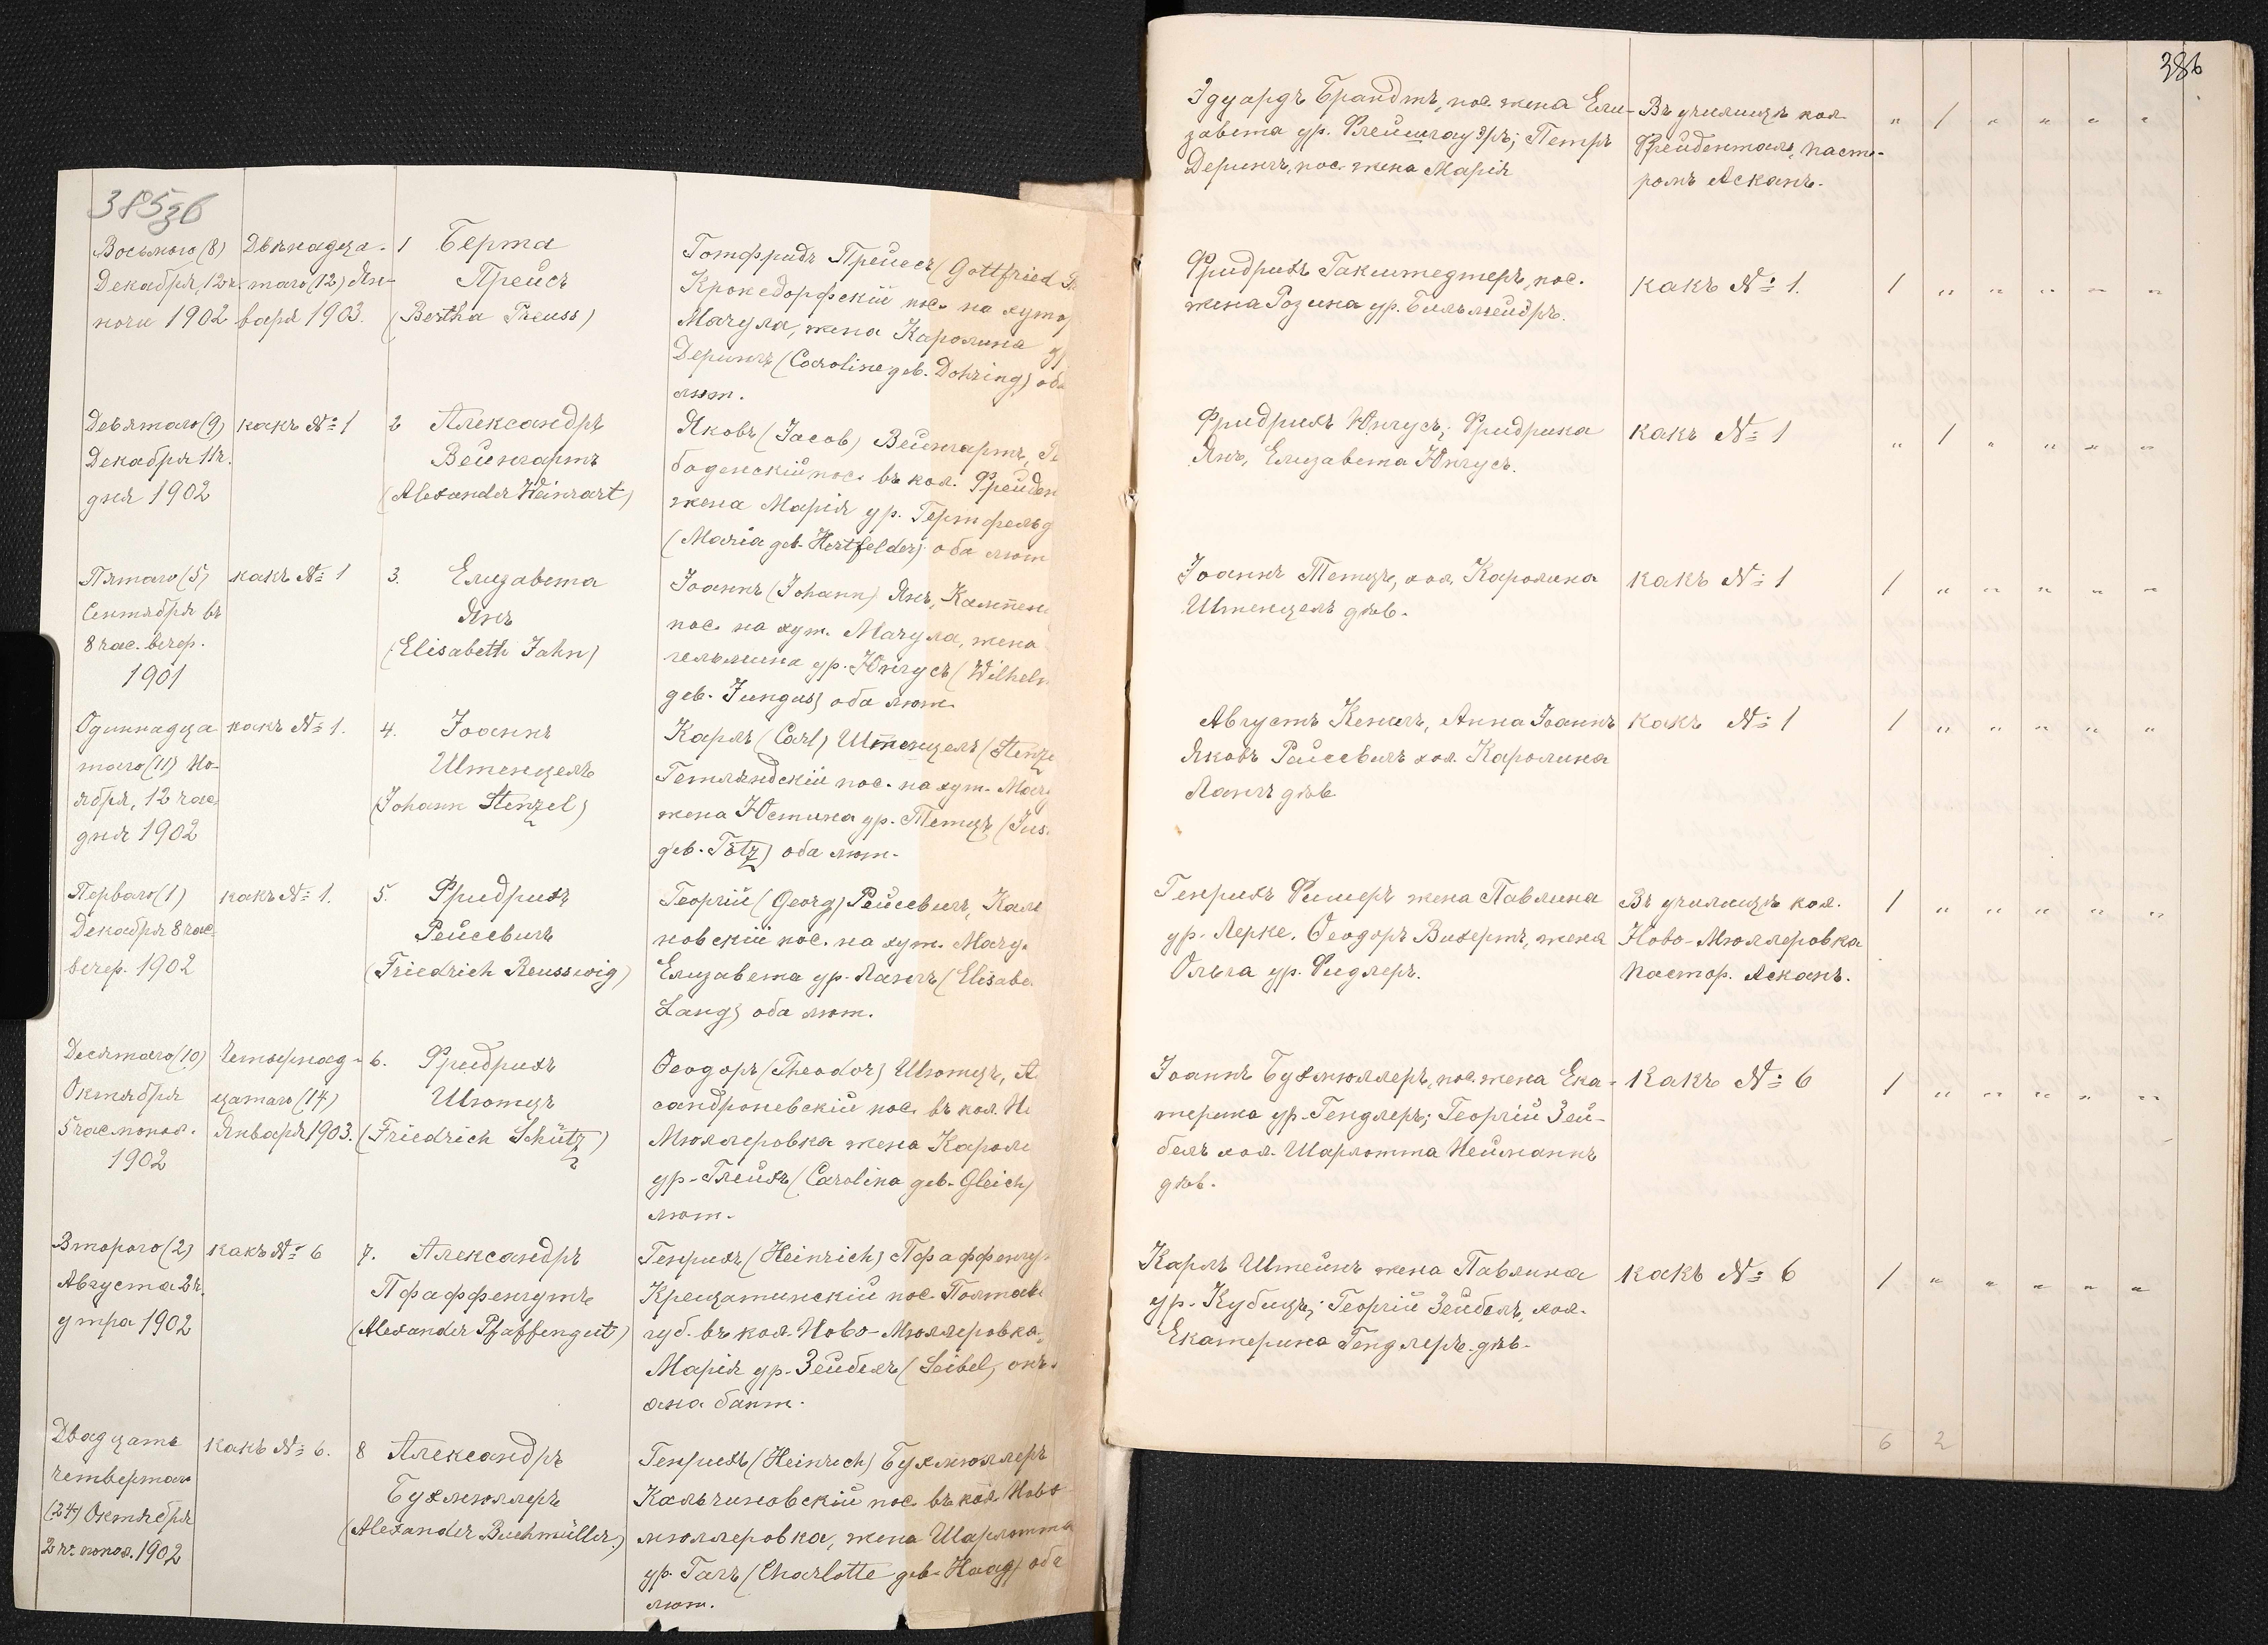 385 об
Восьмого (8)
Декабря, 12 ч.
ночи 1902
Двѣнадца-
таго (12) Ян-
варя 1903.
1 Берта
Прейсъ
(Bertha Preuss)
Готфридъ Прейссъ (Gottfried
Кронсдорфскій пос. на хутор
Мачула, жена Каролина
Дерингъ (Caroline geb. Dohring) оба
лют.
Девятаго (9)
Декабря 11 ч.
дня 1902
какъ № 1
2 Александръ
Вейнгартъ
(Alexander Weingart)
Яковъ (Jacob) Вейнгартъ,
боденскій пос. въ кол. Фрейден
жена Марія ур. Гертфельд
(Maria geb. Hertfelder) оба лют
Пятаго (5)
Сентября въ
8 час. вечер.
1901
какъ № 1
3. Елизавета
Янъ
(Elisabeth Jahn)
Іоаннъ (Johann) Янъ,
пос. на хут. Мачула, жена
гельмина ур. Юнгусъ (Wilhelm
geb. Jungus) оба лют.
Одиннадца
таго (11) Но-
ября, 12 час.
дня 1902
какъ № 1.
4. Іоаннъ
Штенцель
(Johann Stenzel)
Карлъ (Carl) Штенцель (Stenze
Гетляндскій пос. на хут. Мачу
жена Юстина ур. Тетцъ (Jus
geb. Tötz) оба лют.
Перваго (1)
Декабря 8 час.
вечер. 1902
какъ № 1.
5. Фридрихъ
Рейссвигъ
(Friedrich Reusswig)
Георгій (Georg) Рейссвигъ, Каль
новскій пос. на хут. Мачу
Елизавета ур. Лангъ (Elisabe
Lang) оба лют.
Десятаго (10)
Октября
5 час. попол.
1902
Четырнад-
цатаго (14)
Января 1903.
6. Фридрихъ
Шютцъ
(Friedrich Schütz)
Ѳеодоръ (Theodor) Шютцъ, А
сандроневскій пос. въ кол. Но
Мюллеровка жена Кароли
ур. Глейхъ (Carolina geb. Gleich)
лют.
Второго (2)
Августа 2 ч.
утра 1902
какъ № 6
7. Александръ
Пфаффенгутъ
(Alexander Pfaffengut)
Генрихъ (Heinrich) Пфаффенгу
Крещатинскій пос. Полтав
губ. въ кол. Ново-Мюллеровка,
Марія ур. Зейбель (Seibel, онъ
она бапт.
Двадцать
четвертаго
(24) Октября
2 ч. попол. 1902
какъ № 6.
8 Александръ
Бухмюллеръ
(Alexander Buchmüller.)
Генрихъ (Heinrich) Бухмюллеръ
Кальчиновскій пос. въ кол. Ново
мюллеровка, жена Шарлотта
ур. Гагъ (Charlotte geb. Haag) оба
лют.
386
Эдуардъ Брандтъ, пос. жена Ели-
завета ур. Флейшгауэръ; Петръ
Дерингъ, пос. жена Марія
Въ училищѣ кол.
Фрейденталь, пасто-
ромъ Асканъ.
" 1 " " " "
Фридрихъ Гакштедтеръ, пос.
жена Розина ур. Бильмейеръ.
какъ № 1.
1 " " " " "
Фридрихъ Юнгусъ; Фридрика
Янъ, Елизавета Юнгусъ.
какъ № 1
" 1 " " " "
Іоаннъ Тетцъ, хол. Каролина
Штенцель дѣв.
какъ № 1
1 " " " " "
Августъ Кенигъ, Анна Іоаннъ
Яковъ Рейссвигъ хол. Каролина
Лангъ дѣв
какъ № 1
1 " " " " "
Генрихъ Фишеръ жена Павлина
ур. Лерке. Ѳеодоръ Вихертъ, жена
Ольга ур. Фидлеръ.
Въ училищѣ кол.
Ново-Мюллеровка
Пастор. Асканъ.
1 " " " " "
Іоаннъ Бухмюллеръ, пос. жена Ека-
терина ур. Гендлеръ; Георгій Зей-
бель хол. Шарлотта Нейманнъ
дѣв.
Какъ № 6
1 " " " " "
Карлъ Штейнъ жена Павлина
ур. Кубицъ; Георгій Зейбель, хол.
Екатерина Гендлеръ дѣв.
какъ № 6
1 " " " " "
6 2